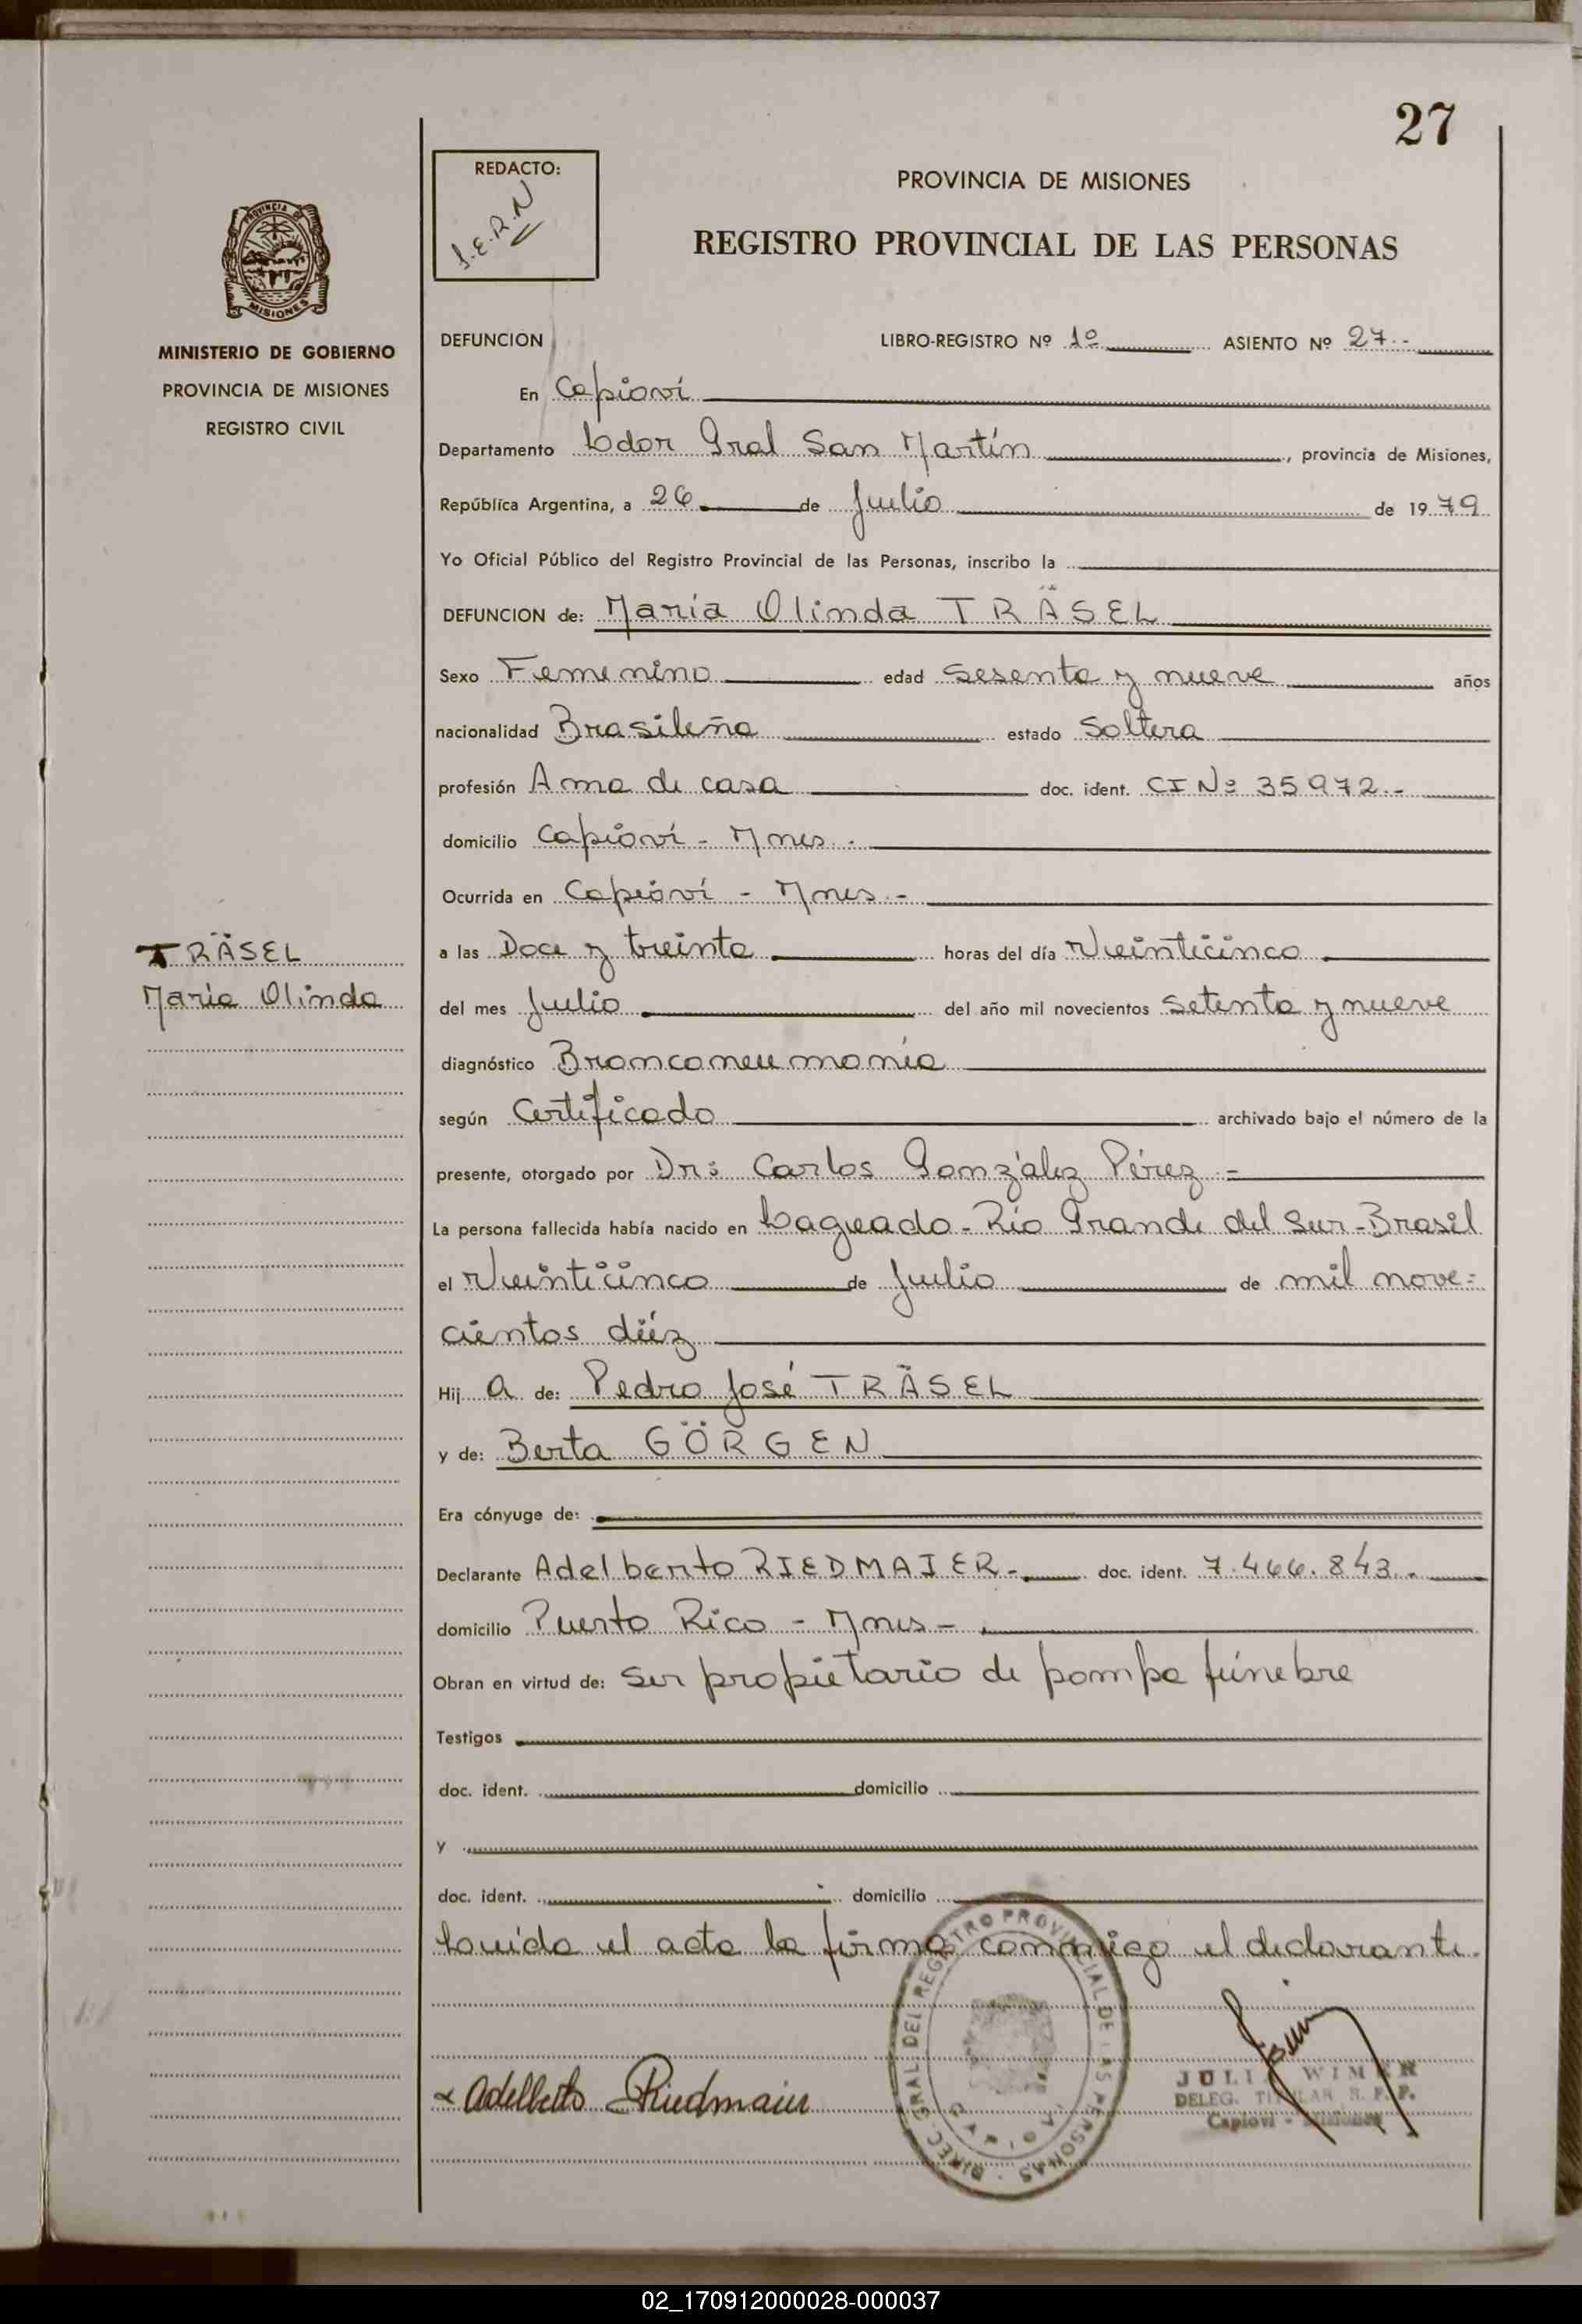 27
REDACTO:
J.E.R.N
PROVINCIA DE MISIONES
REGISTRO PROVINCIAL DE LAS PERSONAS
PROVINCIA DE
MISIONES
MINISTERIO DE GOBIERNO
PROVINCIA DE MISIONES
REGISTRO CIVIL
DEFUNCION LIBRO-REGISTRO Nº 1º ASIENTO Nº 27.-
En Capioví
Departamento Ldor Gral San Martín, provincia de Misiones,
República Argentina, a 26 de Julio de 1979
Yo Oficial Público del Registro Provincial de las Personas, inscribo la
DEFUNCION de: María Olinda TRÄSEL
Sexo Femenino edad Sesenta y nueve años
nacionalidad Brasileña estado Soltera
profesión Ama de casa doc. ident. CI Nº 35972.-
domicilio Capioví - Mnes.
Ocurrida en Capioví - Mnes.-
TRÄSEL
María Olinda
a las Doce y treinta horas del día Veinticinco
del mes Julio del año mil novecientos Setenta y nueve
diagnóstico Bronconeumonía
según Certificado archivado bajo el número de la
presente, otorgado por Dr: Carlos González Pérez.-
La persona fallecida había nacido en Lagueado - Río Grande del Sur - Brasil
el Veinticinco de Julio de mil nove=
cientos diéz
Hij a de: Pedro José TRÄSEL
y de: Berta GÖRGEN
Era cónyuge de:
Declarante Adelberto RIEDMAIER.- doc. ident. 7.466.843.-
domicilio Puerto Rico - Mnes -
Obran en virtud de: Ser propietario de pompa fúnebre
Testigos
doc. ident. domicilio
y
doc. ident. domicilio
Louida el acta la firma conmigo el declarante.
DIREC. GRAL DEL REGISTRO PROVINCIAL DE LAS PERSONAS
CAPIOVI
x Adelberto Riedmaier
JULIA WIMER
DELEG. TITULAR R.P.P.
Capioví - Misiones
02_170912000028-000037